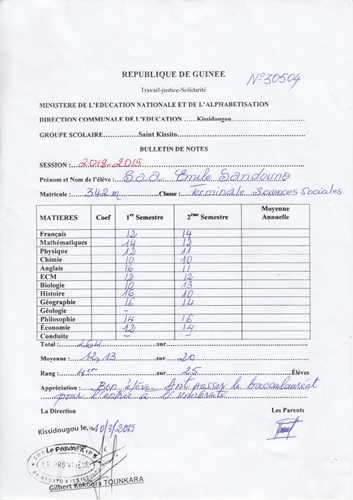 REPUBLIQUE DE GUINEE
N°30504
Travail-justice-Solidarité
MINISTERE DE L'EDUCATION NATIONALE ET DE L'ALPHABETISATION
DIRECTION COMMUNALE DE L'EDUCATION ......Kissidougou
GROUPE SCOLAIRE................Saint Kissito
BULLETIN DE NOTES
SESSION : 2018-2015
Prénom et Nom de l'élève : Saa Emile Sandouno
Matricule : 342m Classe : Terminale Sciences Sociales
MATIERES Coef 1er Semestre 2ème Semestre Moyenne Annuelle
Français 12 14
Mathématiques 14 12
Physique 12 11
Chimie 10 10
Anglais 16 11
ECM 12 12
Biologie 10 13
Histoire 16 10
Géographie 16 14
Géologie -
Philosophie 14 16
Économie 12 14
Conduite -
Total : 264 sur
Moyenne : 12,13 sur 20
Rang : 4er sur 25 Élèves
Appréciation : Bon élève. Apt passer le baccalauréat
pour l'entrée à l'Université
La Direction Les Parents
Kissidougou le, 10/3/2015
Le Proviseur
LE PROVISEUR
Gilbert Kokoara TOUNKARA